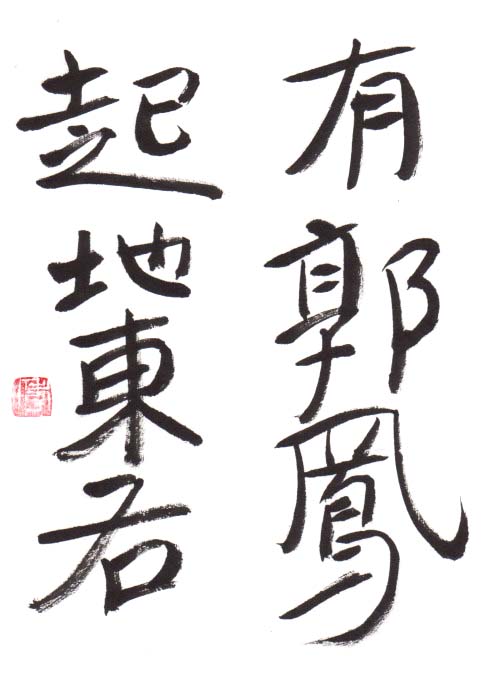 有郭鳳
起地東右